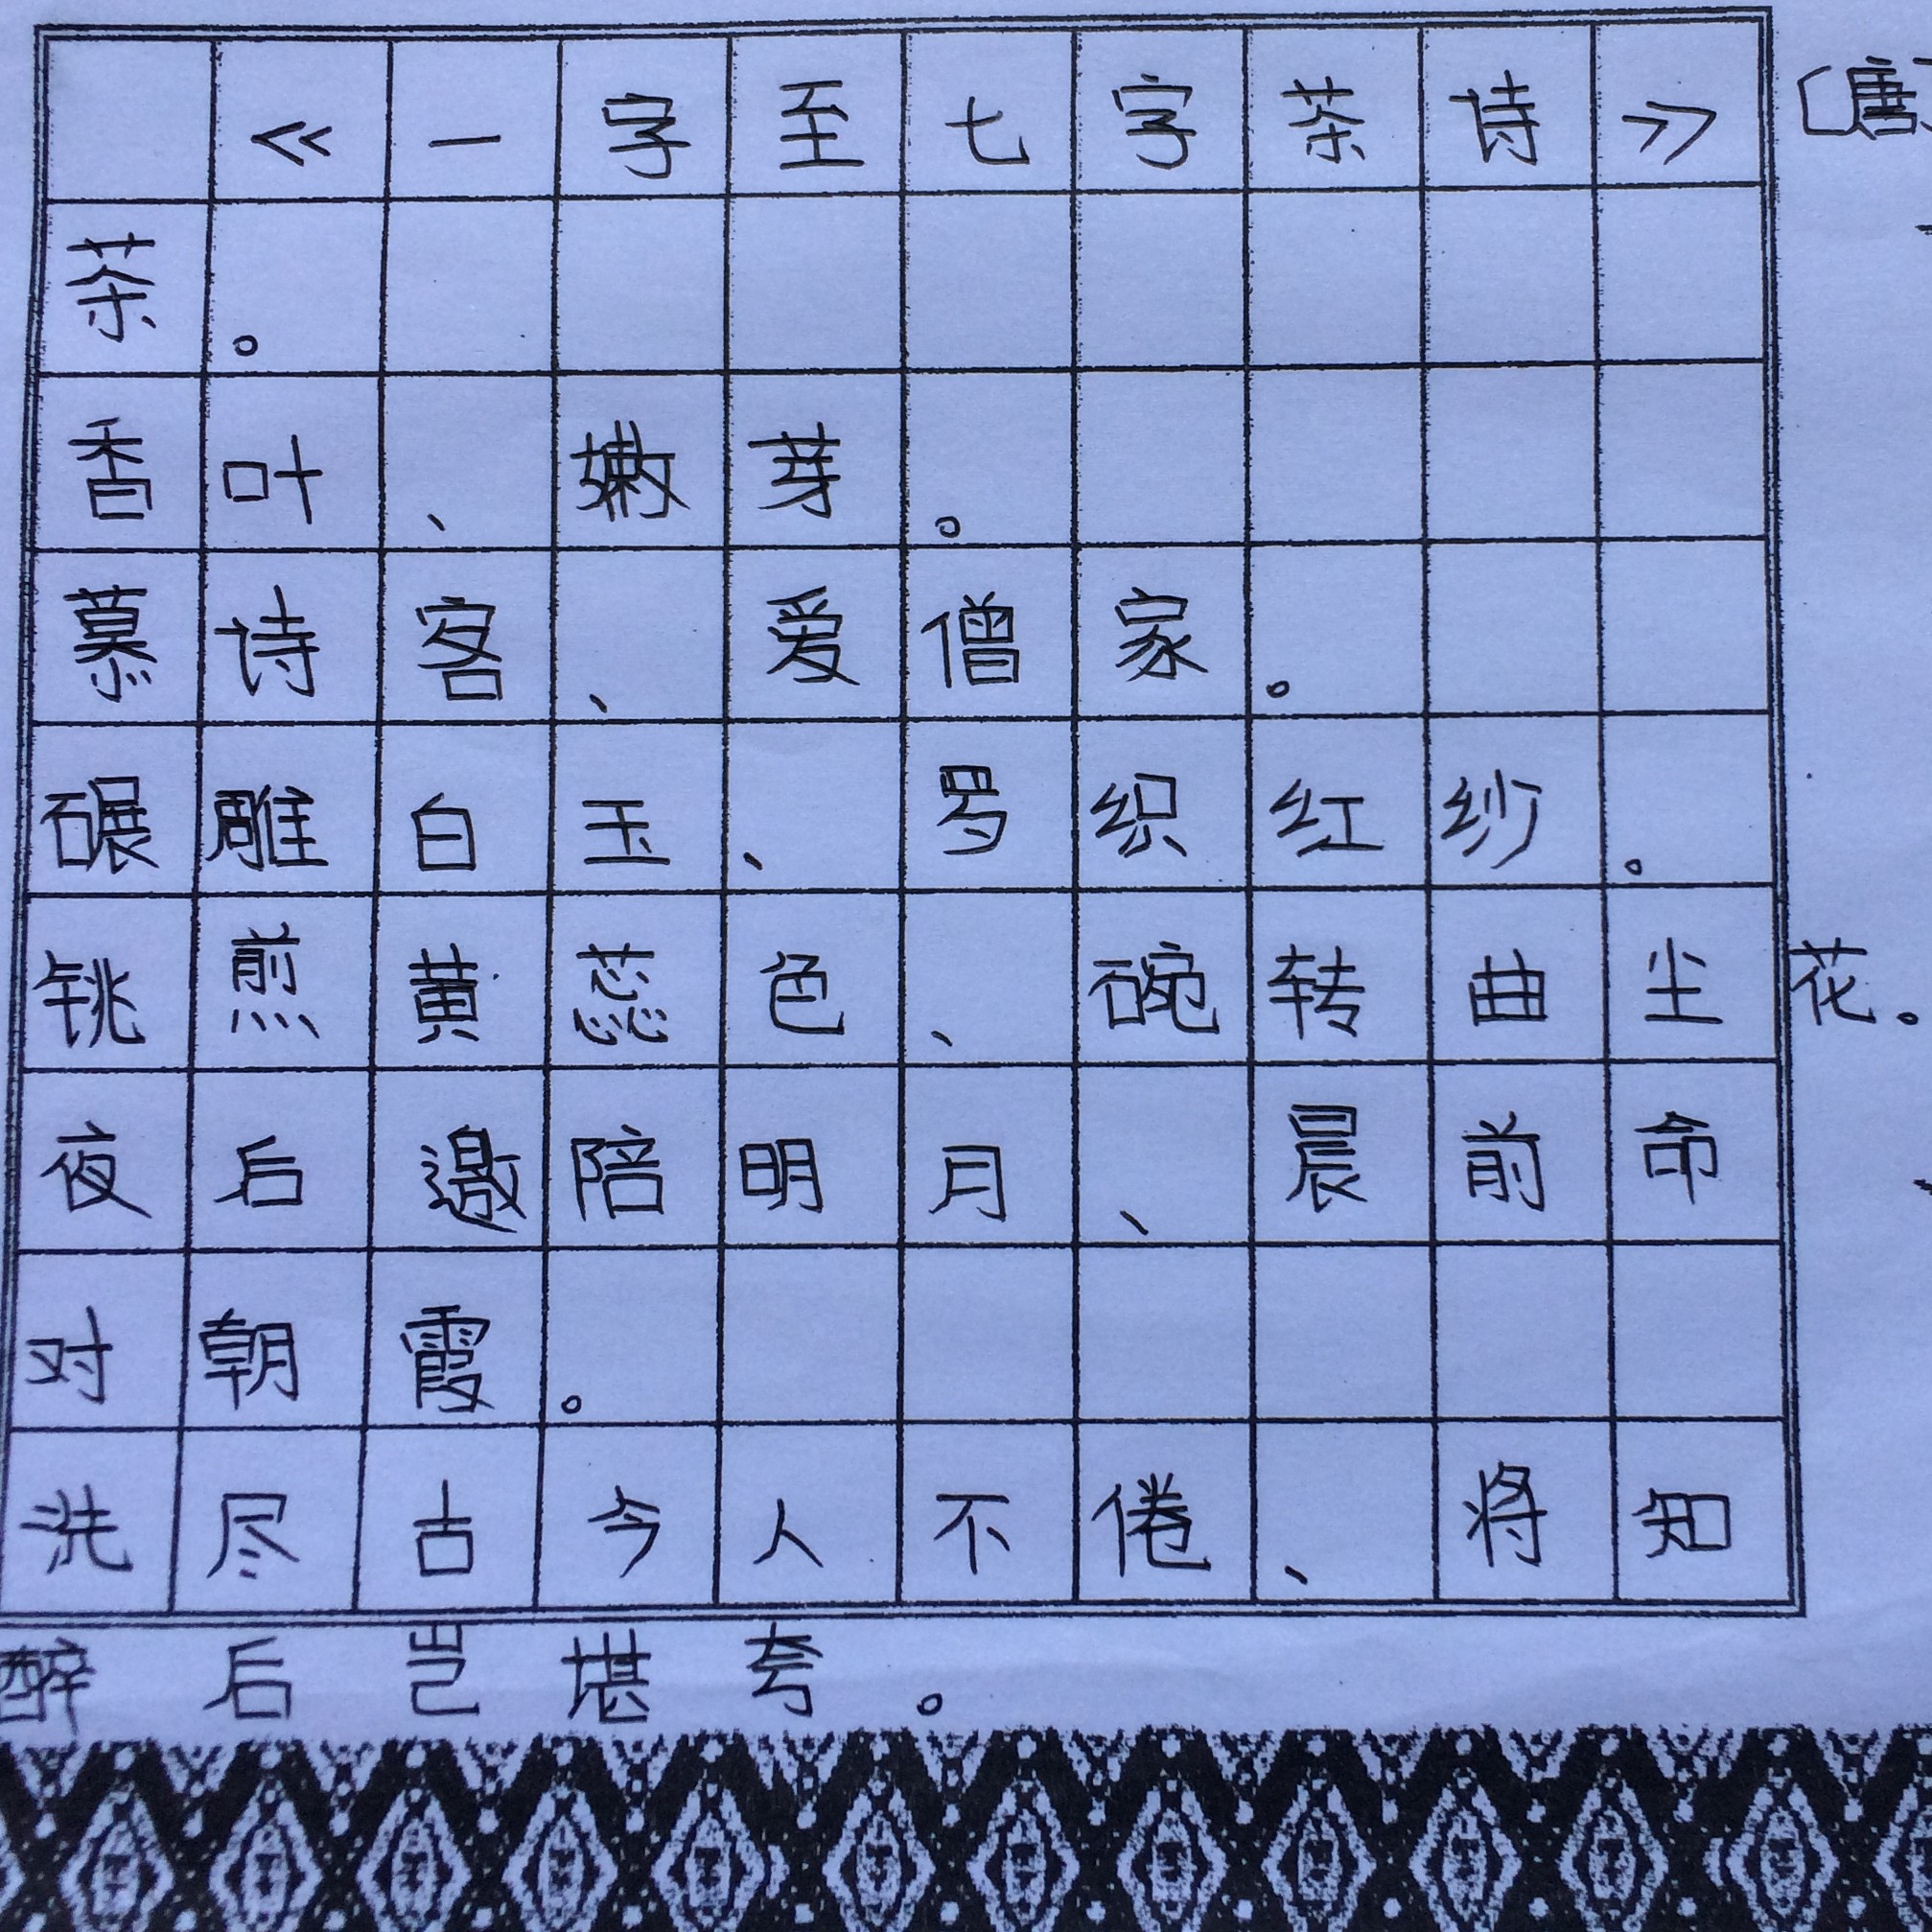 《一字至七字茶诗》〔唐
茶。
香叶、嫩芽。
慕诗客、爱僧家。
碾雕白玉、罗织红纱。
铫煎黄蕊色、碗转曲尘花。
夜后邀陪明月、晨前命
对朝霞。
洗尽古今人不倦、将知
醉后岂堪夸。